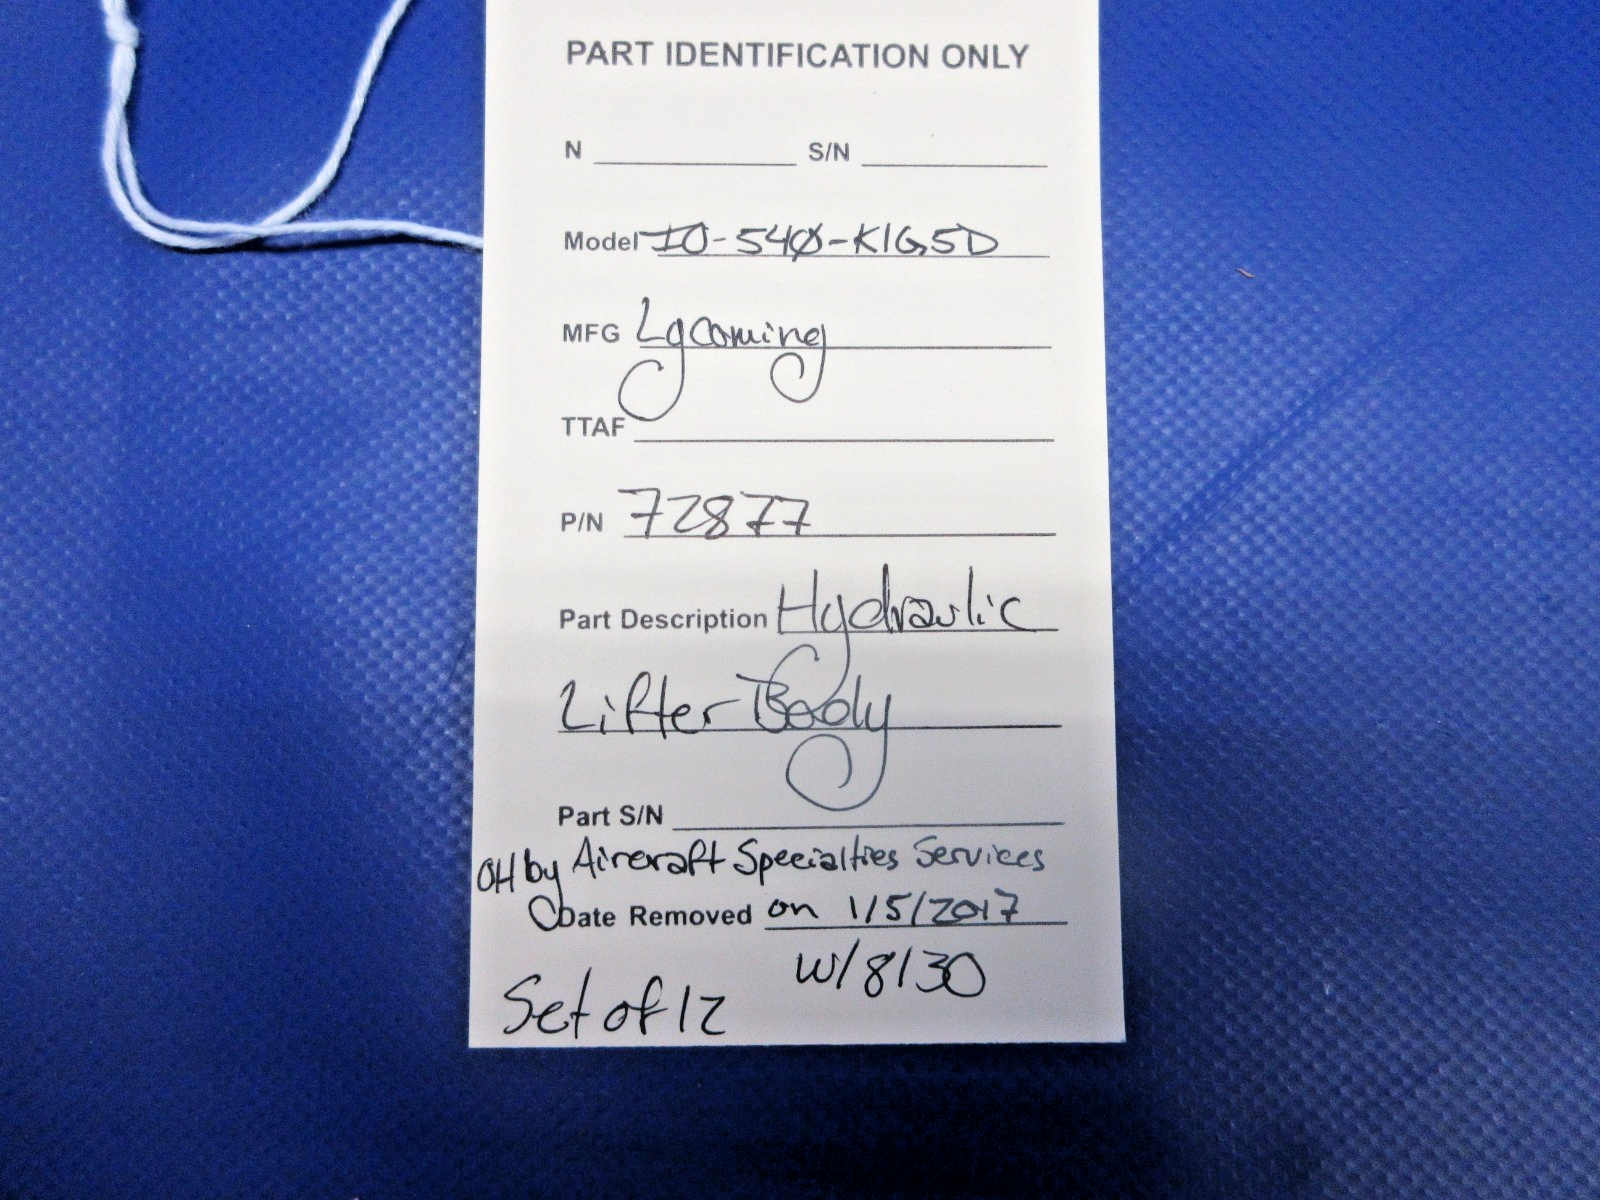 PART IDENTIFICATION ONLY
N S/N
Model IO-540-K1G5D
MFG Lycoming
TTAF
P/N 72877
Part Description Hydraulic
Lifter Body
Part S/N
OH by Aircraft Specialties Services
Date Removed on 1/5/2017
w/8130
Set of 12